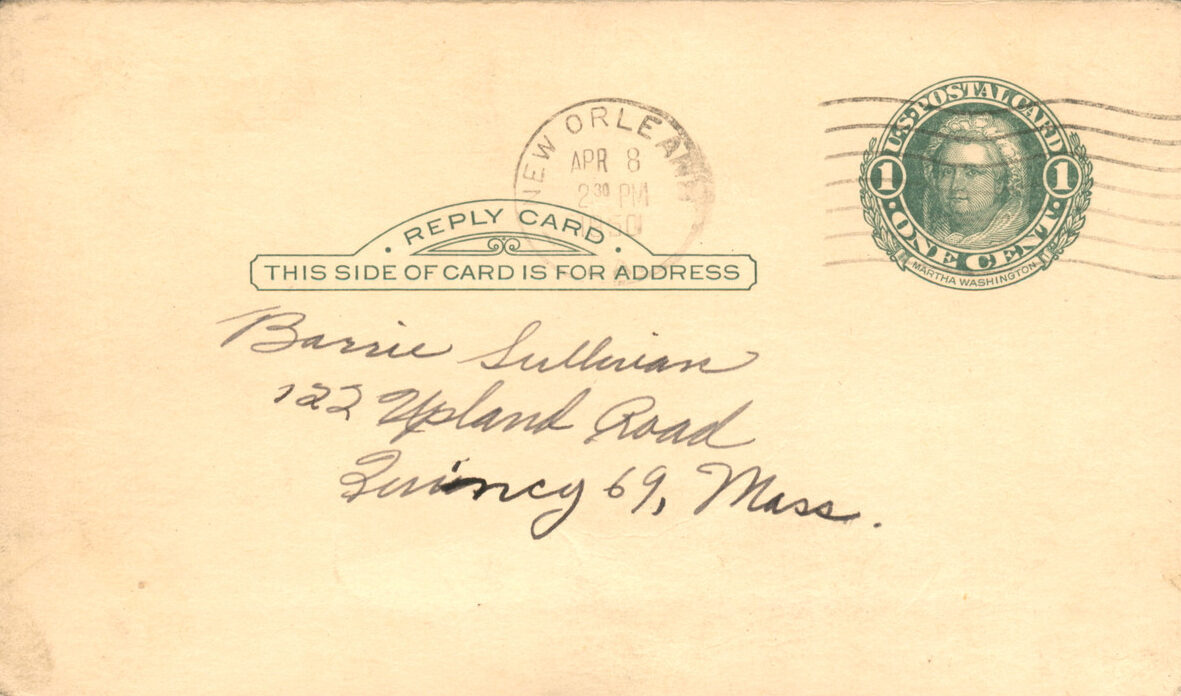 NEW ORLEANS
APR 8
2 30 PM
U.S. POSTAL CARD
1 1
ONE CENT
MARTHA WASHINGTON
· REPLY CARD ·
THIS SIDE OF CARD IS FOR ADDRESS
Barrie Sullivan
122 Upland Road
Quincy 69, Mass.